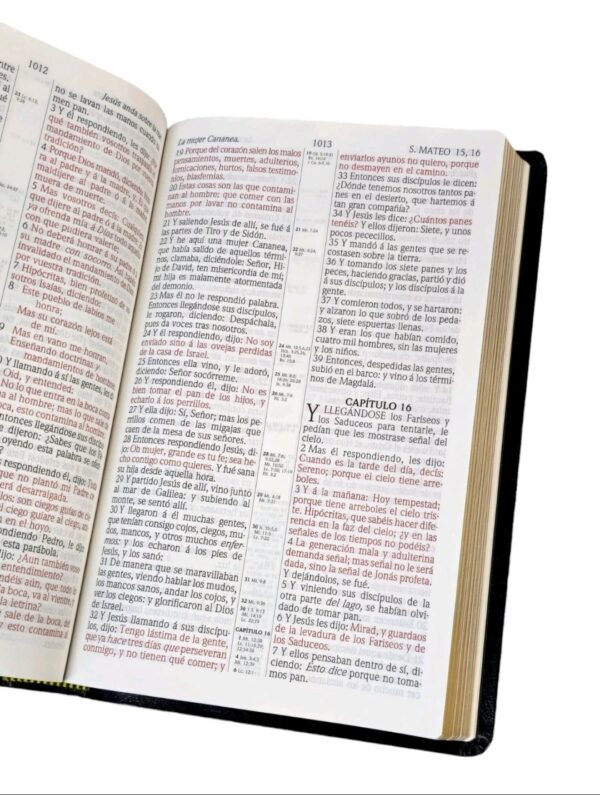 1012
Jesús anda sobre la
no se lavan las manos cuando
men pan.
3 Y él respondiendo, les dijo:
qué también vosotros
mandamiento de Dios por
tradición?
4 Porque Dios mandó, diciendo
ra al Padre y á la madre
maldijere al padre ó á la
muera de muerte.
5 Mas vosotros decís:
que dijere al padre ó á la madre
ya ofrenda mía á Dios todo
con que pudiera valerte;
6 No deberá honrar á su
su madre con socorro. Así
invalidado el mandamiento de
por vuestra tradición.
7 Hipócritas, bien profetizó
sotros Isaías, diciendo:
8 Este pueblo de labios me
honra;
Mas su corazón lejos está
de mí.
9 Mas en vano me honran,
Enseñando doctrinas y
mandamientos de hombres
Y llamando á sí las gentes, les
Oíd, y entended:
No lo que entra en la boca
na al hombre; mas lo que sale
boca, esto contamina al hombre
Entonces llegándose sus discípulos
dijeron: ¿Sabes que los
oyendo esta palabra se
respondiendo él, dijo:
que no plantó mi Padre
desarraigada.
son ciegos guías de
el ciego guiare al ciego,
en el hoyo.
respondiendo Pedro, le
esta parábola.
dijo: ¿Aun también
entendimiento?
aún, que todo
la boca, va al vientre,
la letrina?
sale de la boca, del
esto contamina á
La mujer Cananea.
1013
S. MATEO 15, 16
19 Porque del corazón salen los malos
pensamientos, muertes, adulterios,
fornicaciones, hurtos, falsos testimo-
nios, blasfemias.
20 Estas cosas son las que contami-
nan al hombre: que comer con las
manos por lavar no contamina al
hombre.
21 Y saliendo Jesús de allí, se fué á
las partes de Tiro y de Sidón.
22 Y he aquí una mujer Cananea,
que había salido de aquellos térmi-
nos, clamaba, diciéndole: Señor, Hi-
jo de David, ten misericordia de mí;
mi hija es malamente atormentada
del demonio.
23 Mas él no le respondió palabra.
Entonces llegándose sus discípulos,
le rogaron, diciendo: Despáchala,
pues da voces tras nosotros.
24 Y él respondiendo, dijo: No soy
enviado sino á las ovejas perdidas
de la casa de Israel.
25 Entonces ella vino, y le adoró,
diciendo: Señor socórreme.
26 Y respondiendo él, dijo: No es
bien tomar el pan de los hijos, y
echarlo á los perrillos.
27 Y ella dijo: Sí, Señor; mas los pe-
rrillos comen de las migajas que
caen de la mesa de sus señores.
28 Entonces respondiendo Jesús, di-
jo: Oh mujer, grande es tu fe; sea he-
cho contigo como quieres. Y fué sana
su hija desde aquella hora.
29 Y partido Jesús de allí, vino junto
al mar de Galilea: y subiendo al
monte, se sentó allí.
30 Y llegaron á él muchas gentes,
que tenían consigo cojos, ciegos, mu-
dos, mancos, y otros muchos enfer-
mos: y los echaron á los pies de
Jesús, y los sanó:
31 De manera que se maravillaban
las gentes, viendo hablar los mudos,
los mancos sanos, andar los cojos, y
ver los ciegos: y glorificaron al Dios
de Israel.
32 Y Jesús llamando á sus discípu-
los, dijo: Tengo lástima de la gente,
que ya hace tres días que perseveran
conmigo, y no tienen qué comer; y
21 Mr. 7.24
31 Mt. 9.8
32 Mr. 9.36
CAPÍTULO 16
enviarlos ayunos no quiero, porque
no desmayen en el camino.
33 Entonces sus discípulos le dicen:
¿Dónde tenemos nosotros tantos pa-
nes en el desierto, que hartemos á
tan gran compañía?
34 Y Jesús les dice: ¿Cuántos panes
tenéis? Y ellos dijeron: Siete, y unos
pocos pececillos.
35 Y mandó á las gentes que se re-
costasen sobre la tierra.
36 Y tomando los siete panes y los
peces, haciendo gracias, partió y dió
á sus discípulos; y los discípulos á la
gente.
37 Y comieron todos, y se hartaron:
y alzaron lo que sobró de los peda-
zos, siete espuertas llenas.
38 Y eran los que habían comido,
cuatro mil hombres, sin las mujeres
y los niños.
39 Entonces, despedidas las gentes,
subió en el barco: y vino á los térmi-
nos de Magdalá.
CAPÍTULO 16
Y LLEGÁNDOSE los Fariseos y
los Saduceos para tentarle, le
pedían que les mostrase señal del
cielo.
2 Mas él respondiendo, les dijo:
Cuando es la tarde del día, decís:
Sereno; porque el cielo tiene arre-
boles.
3 Y á la mañana: Hoy tempestad;
porque tiene arreboles el cielo tris-
te. Hipócritas, que sabéis hacer dife-
rencia en la faz del cielo; ¿y en las
señales de los tiempos no podéis?
4 La generación mala y adulterina
demanda señal; mas señal no le será
dada, sino la señal de Jonás profeta.
Y dejándolos, se fué.
5 Y viniendo sus discípulos de la
otra parte del lago, se habían olvi-
dado de tomar pan.
6 Y Jesús les dijo: Mirad, y guardaos
de la levadura de los Fariseos y de
los Saduceos.
7 Y ellos pensaban dentro de sí, di-
ciendo: Esto dice porque no toma-
mos pan.